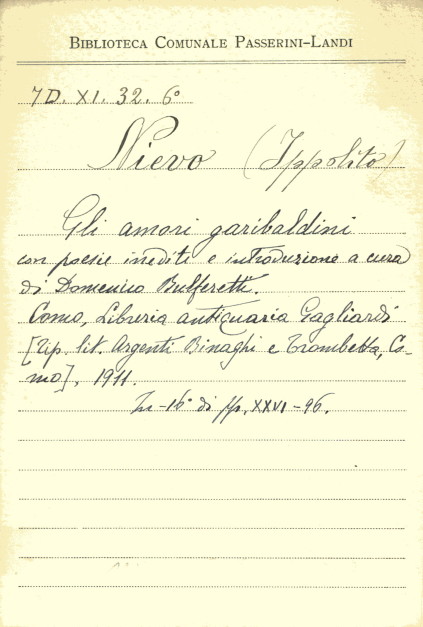 BIBLIOTECA COMUNALE PASSERINI-LANDI
7D. XI. 32. 6°
Nievo (Ippolito)
Gli amori garibaldini
con poesie inedite e introduzione a cura
di Domenico Bulferetti.
Como, Libreria antiquaria Gagliardi
[Tip. lit. Argenti Binaghi e Trombetta, Co-
mo], 1911.
In-16° di pp. XXVI-96.